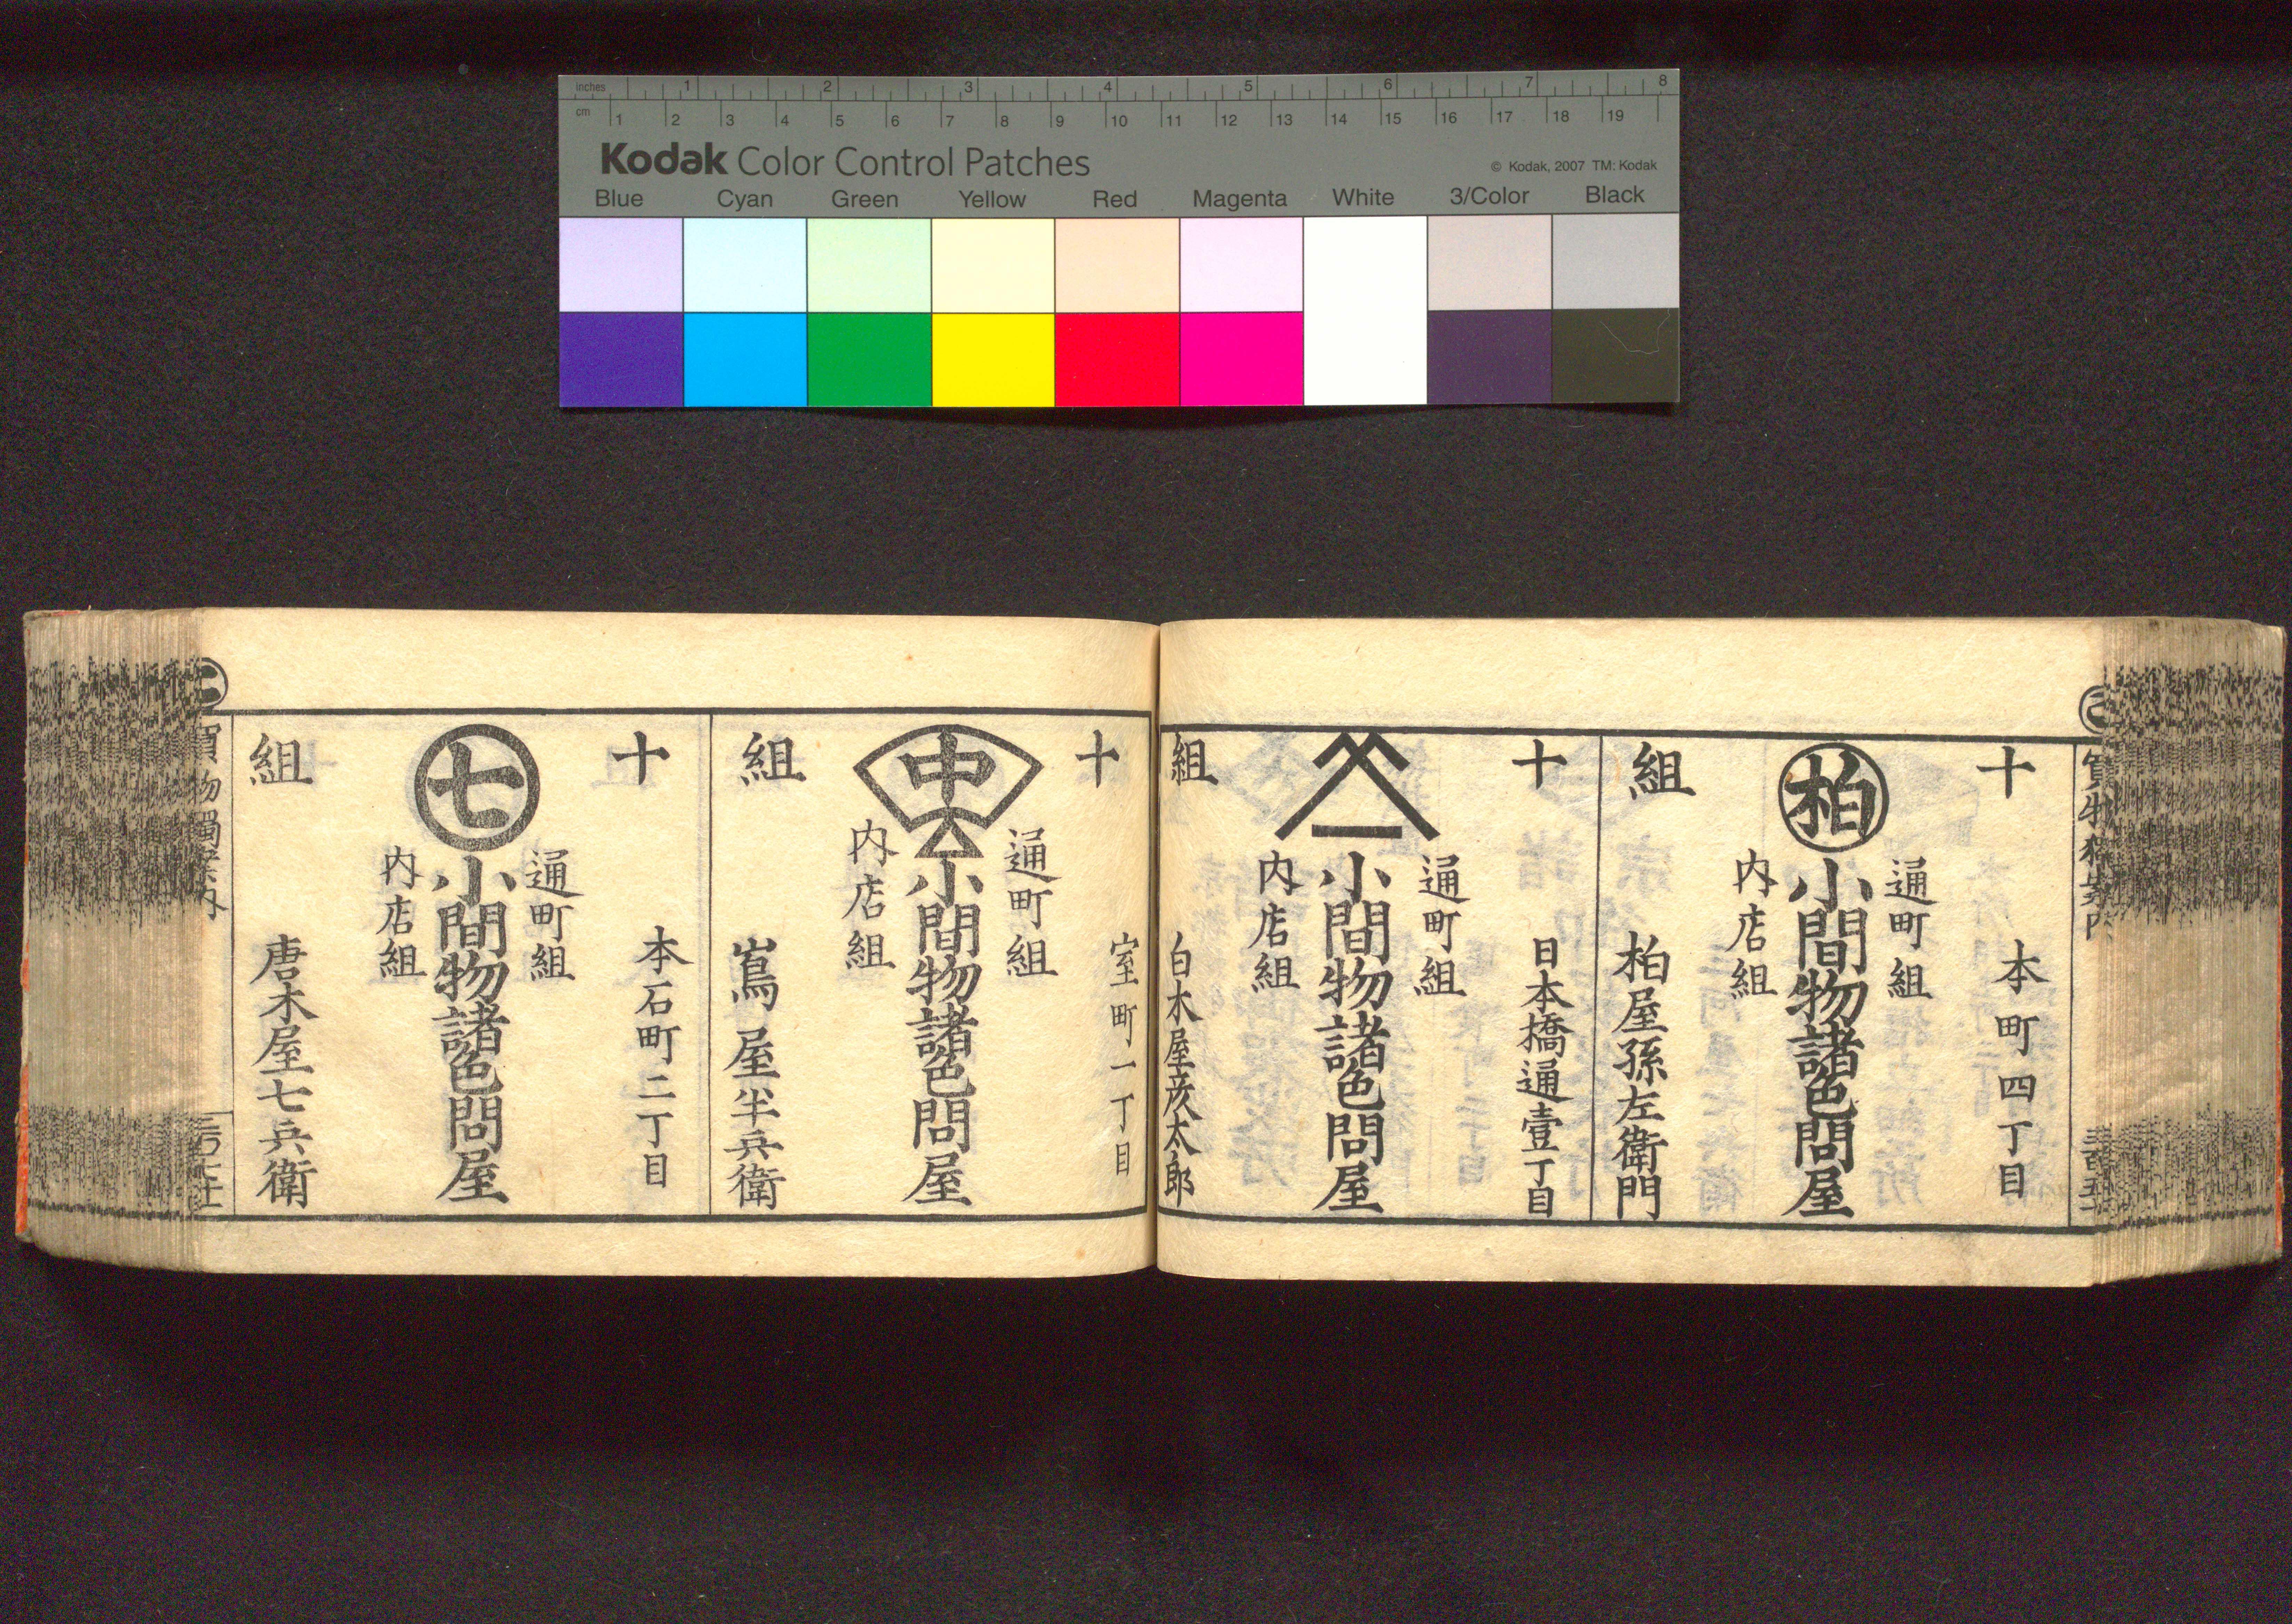 inches 1 2 3 4 5 6 7 8
cm 1 2 3 4 5 6 7 8 9 10 11 12 13 14 15 16 17 18 19
Kodak Color Control Patches
© Kodak, 2007 TM: Kodak
Blue Cyan Green Yellow Red Magenta White 3/Color Black
十組
本町四丁目
柏
通町組
内店組
小間物諸色問屋
柏屋孫左衛門
十組
日本橋通壹丁目
通町組
内店組
小間物諸色問屋
白木屋彦太郎
十組
室町一丁目
中
通町組
内店組
小間物諸色問屋
嶌屋半兵衛
十組
本石町二丁目
七
通町組
内店組
小間物諸色問屋
唐木屋七兵衛